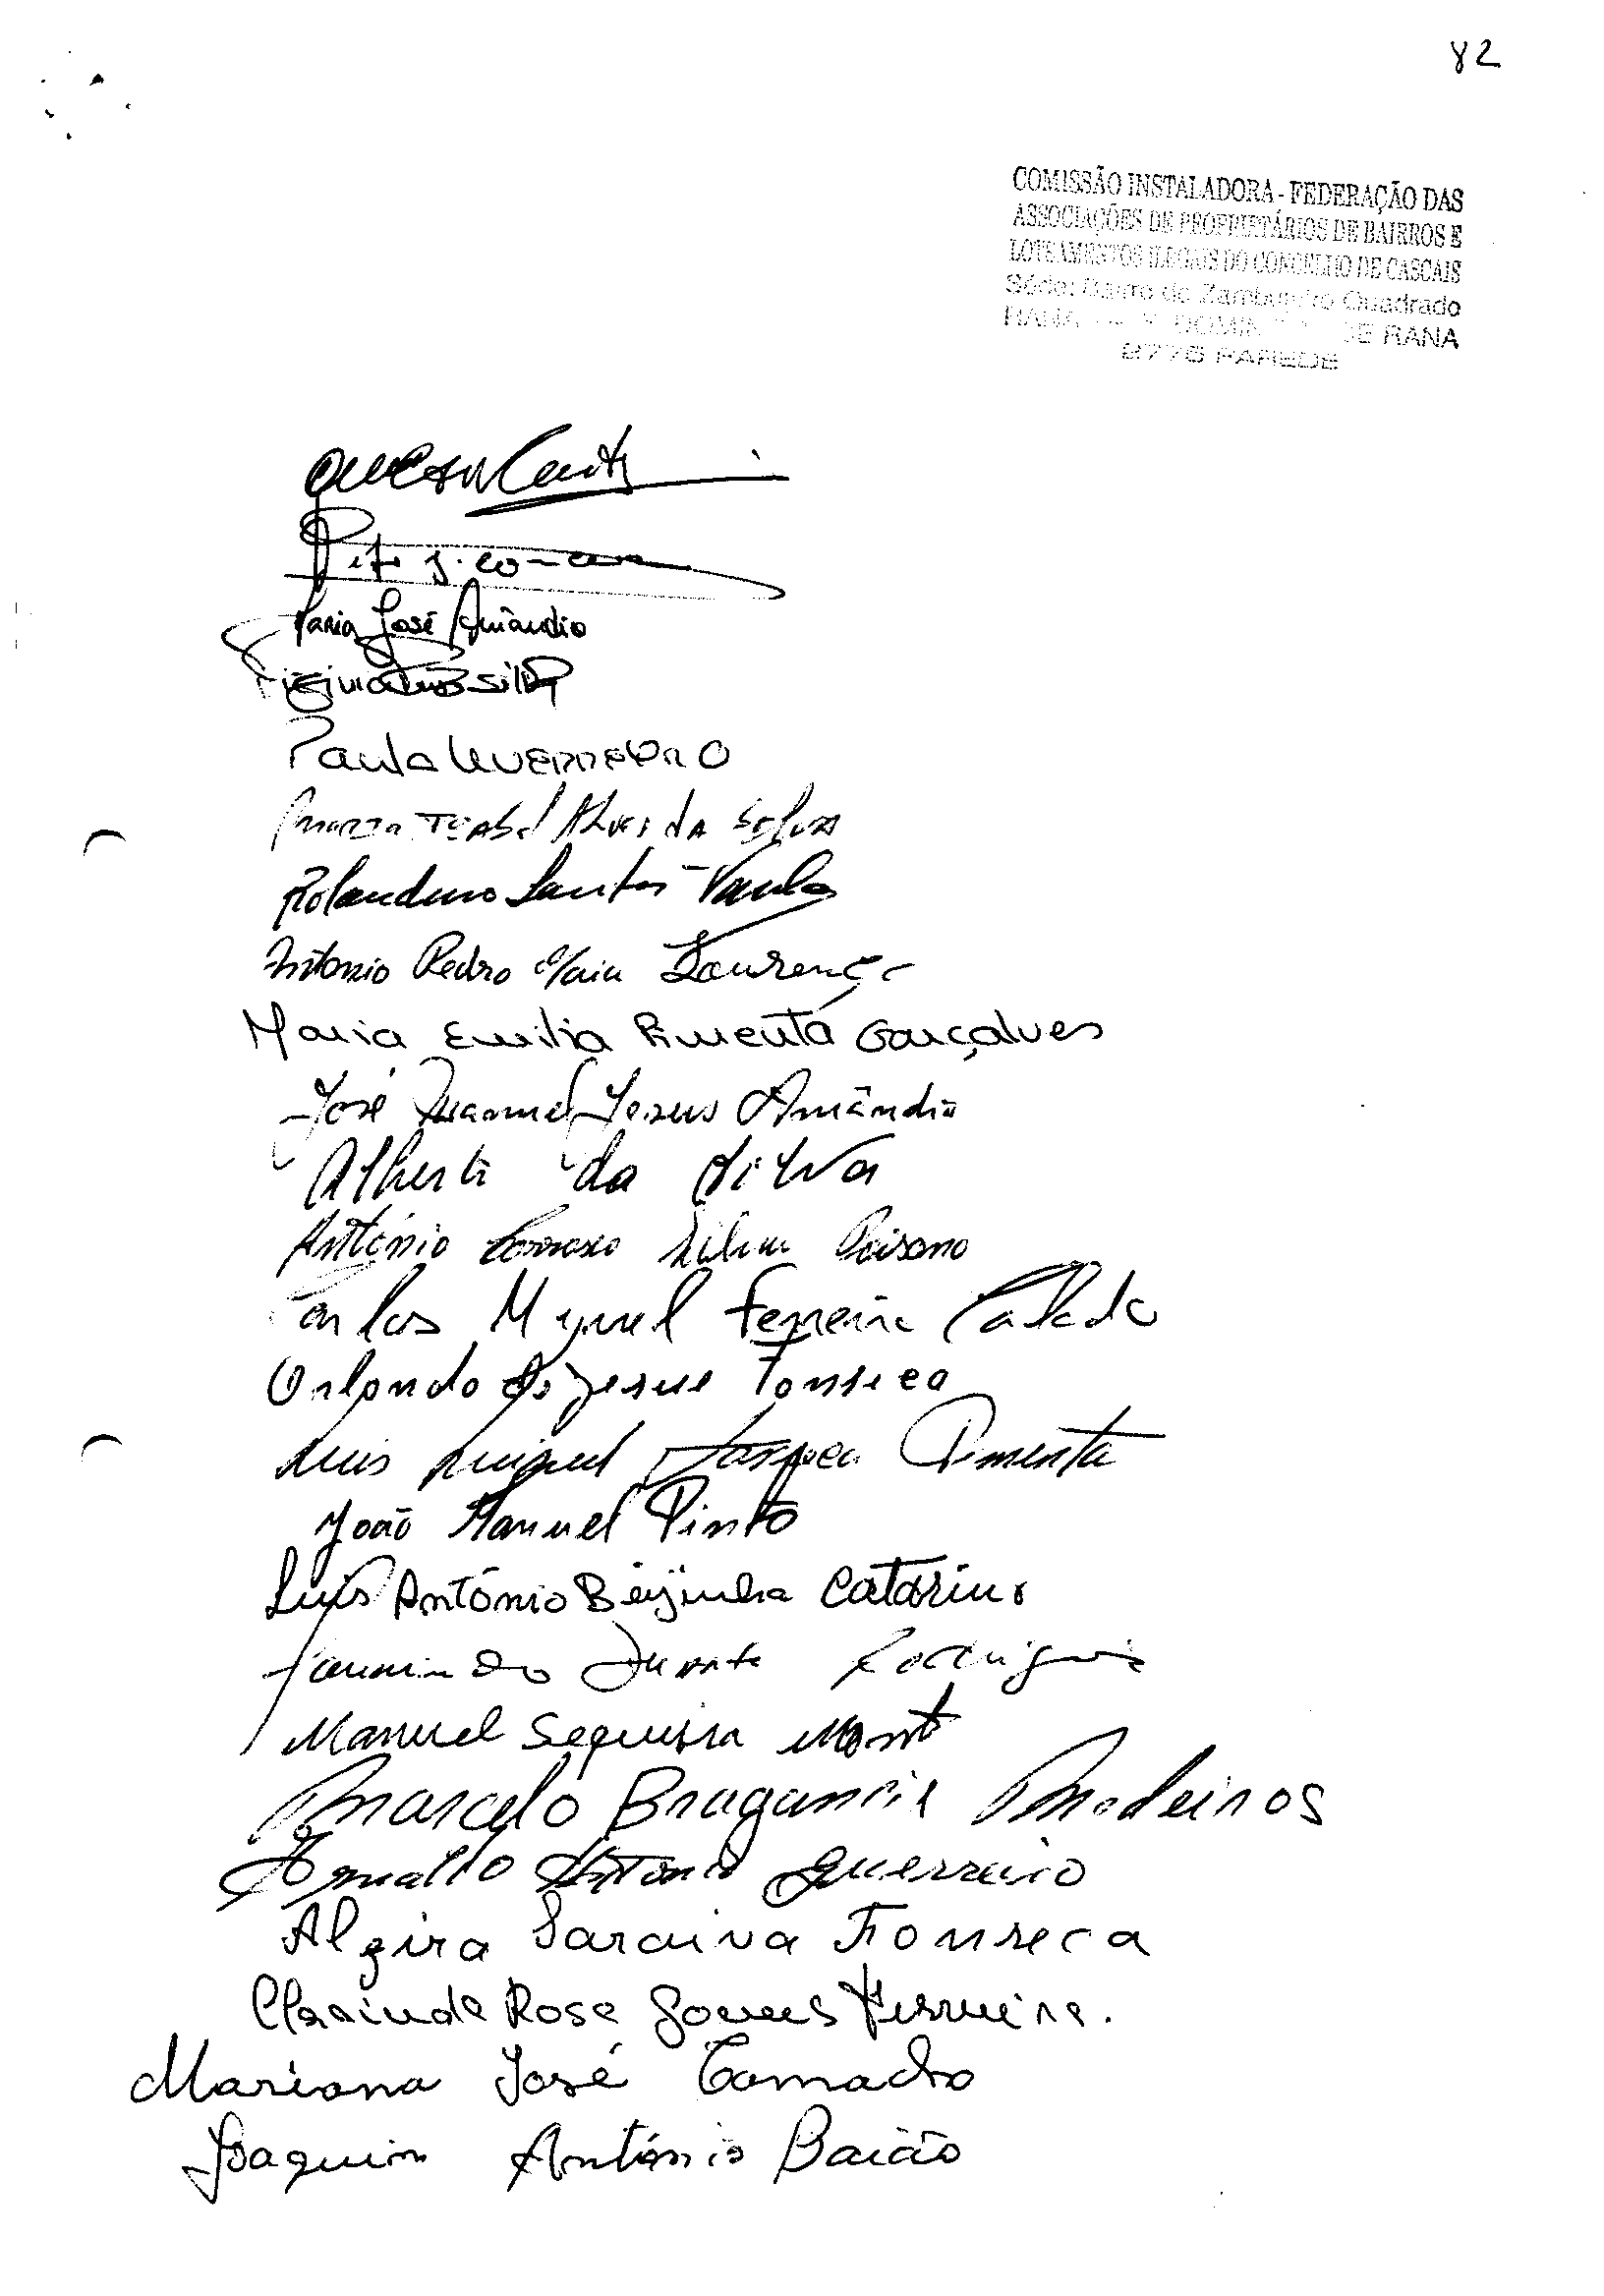 82
COMISSÃO INSTALADORA - FEDERAÇÃO DAS
ASSOCIAÇÕES DE PROPRIETÁRIOS DE BAIRROS E
LOTEAMENTOS ILEGAIS DO CONCELHO DE CASCAIS
Séde: Bairro do Zambujeiro Quadrado
RANA DOMIN DE RANA
2775 PAREDE
Maria José Amândio
Silva
Paula Guerreiro
Maria Isabel Alves da Silva
Rolandino Santos Varela
António Pedro Maia Lourenço
Maria Emilia Pimenta Gonçalves
José Manuel Jesus Amândio
Alberto da Silva
António Silva
Carlos Miguel Ferreira Calado
Orlando de Jesus Fonseca
Luis Miguel Fonseca Pimenta
João Manuel Pinto
Luis António Beijinha Catarino
Duarte Rodrigues
Manuel Sequeira
Marcelo Bragancia Medeiros
António Guerreiro
Alzira Saraiva Fonseca
Clarinda Rosa Gomes Ferreira.
Mariana José Camacho
Joaquim António Baião